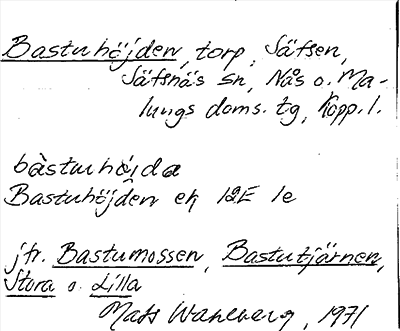 Bastuhöjden, torp, Säfsen,
Säfsnäs sn, Nås o. Ma-
lungs doms. tg, Kopp. l.
bàstuhö́jda
Bastuhöjden ek 12E 1e
jfr. Bastumossen, Bastutjärnen,
Stora o. Lilla
Mats Wahlberg, 1971